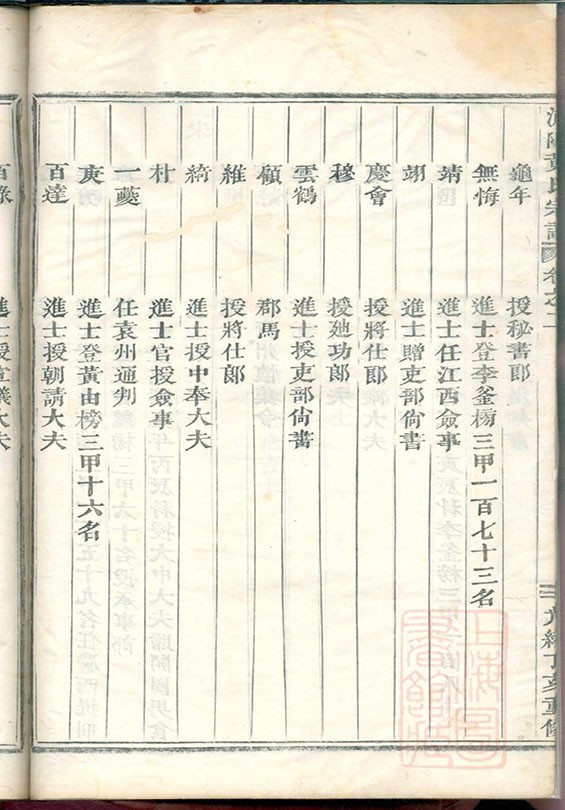 氏宗譜
卷之二
光緒丁亥重修
龜年 授秘書郎
無悔 進士登李釜榜三甲一百七十三名
靖 進士任江西僉事
翊 進士贈吏部尙書
慶會 授將仕郎
穆 授廸功郎
雲鶴 進士授吏部尙書
頎 郡馬
維 授將仕郎
綺 進士授中奉大夫
村 進士官授僉事
一夔 任袁州通判
庚 進士登黃由榜三甲十六名
百達 進士授朝請大夫
百祿 進士授宣義大夫
上海圖書館藏